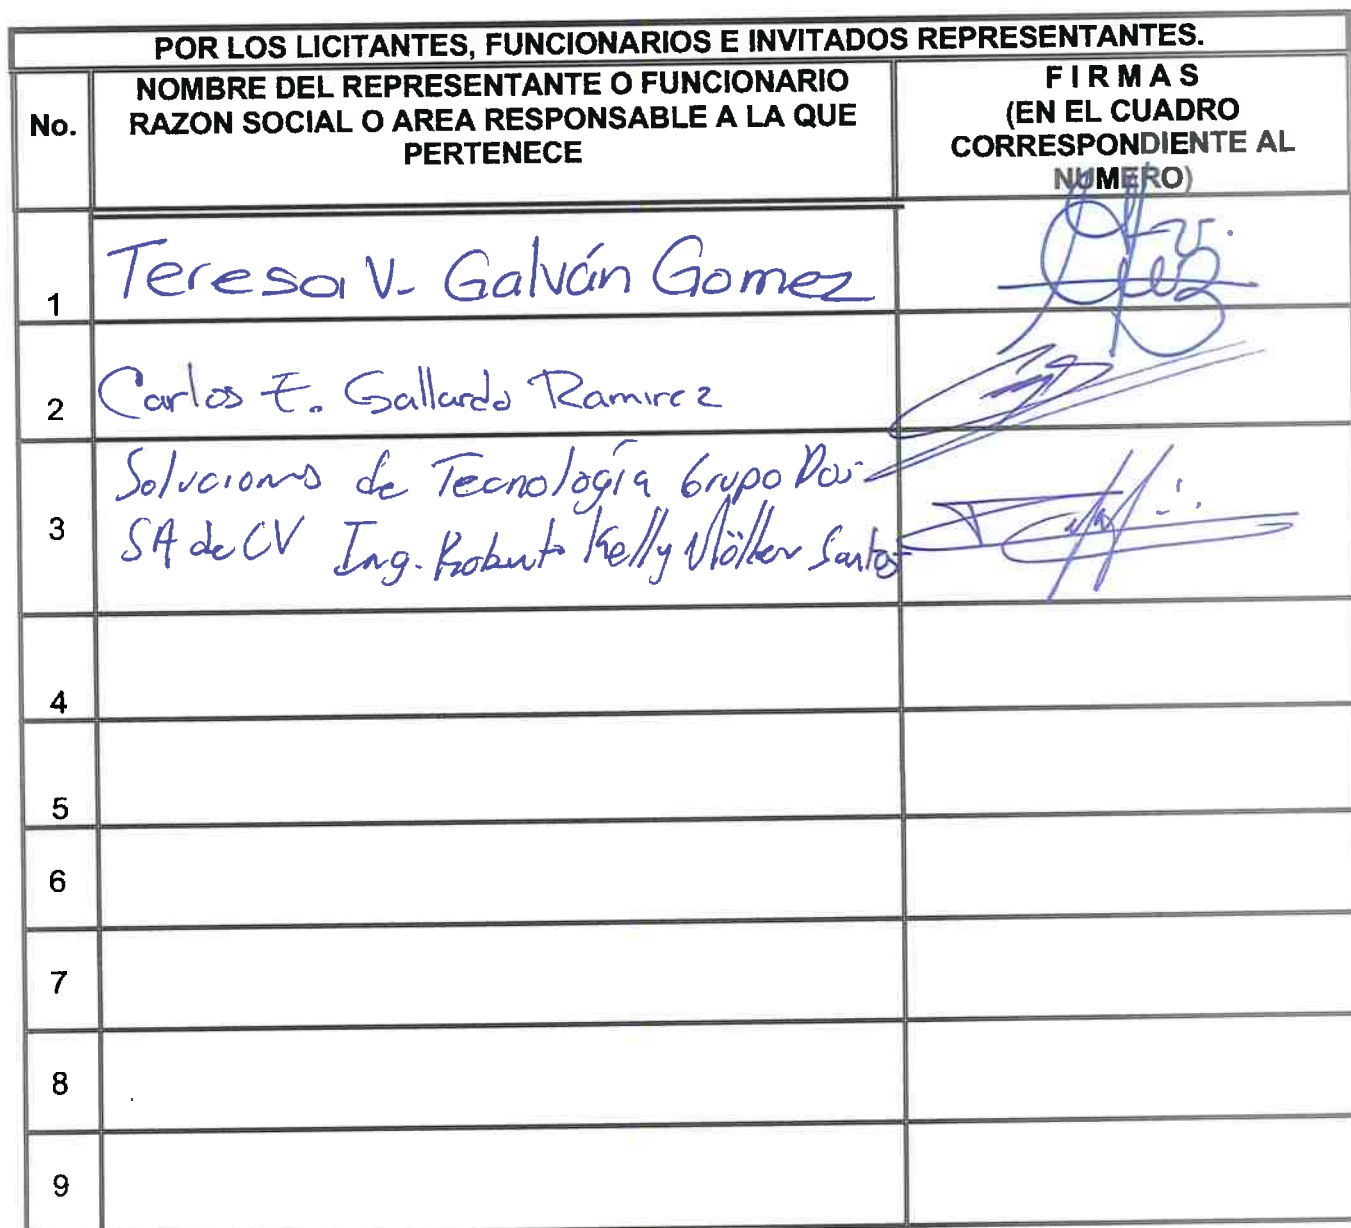 POR LOS LICITANTES, FUNCIONARIOS E INVITADOS REPRESENTANTES.
No.
NOMBRE DEL REPRESENTANTE O FUNCIONARIO
RAZON SOCIAL O AREA RESPONSABLE A LA QUE
PERTENECE
F I R M A S
(EN EL CUADRO
CORRESPONDIENTE AL
NUMERO)
1
Teresa V. Galván Gomez
2
Carlos E. Gallardo Ramirez
3
Soluciones de Tecnología Grupo
SA de CV Ing. Robert Kelly Santos
4
5
6
7
8
9